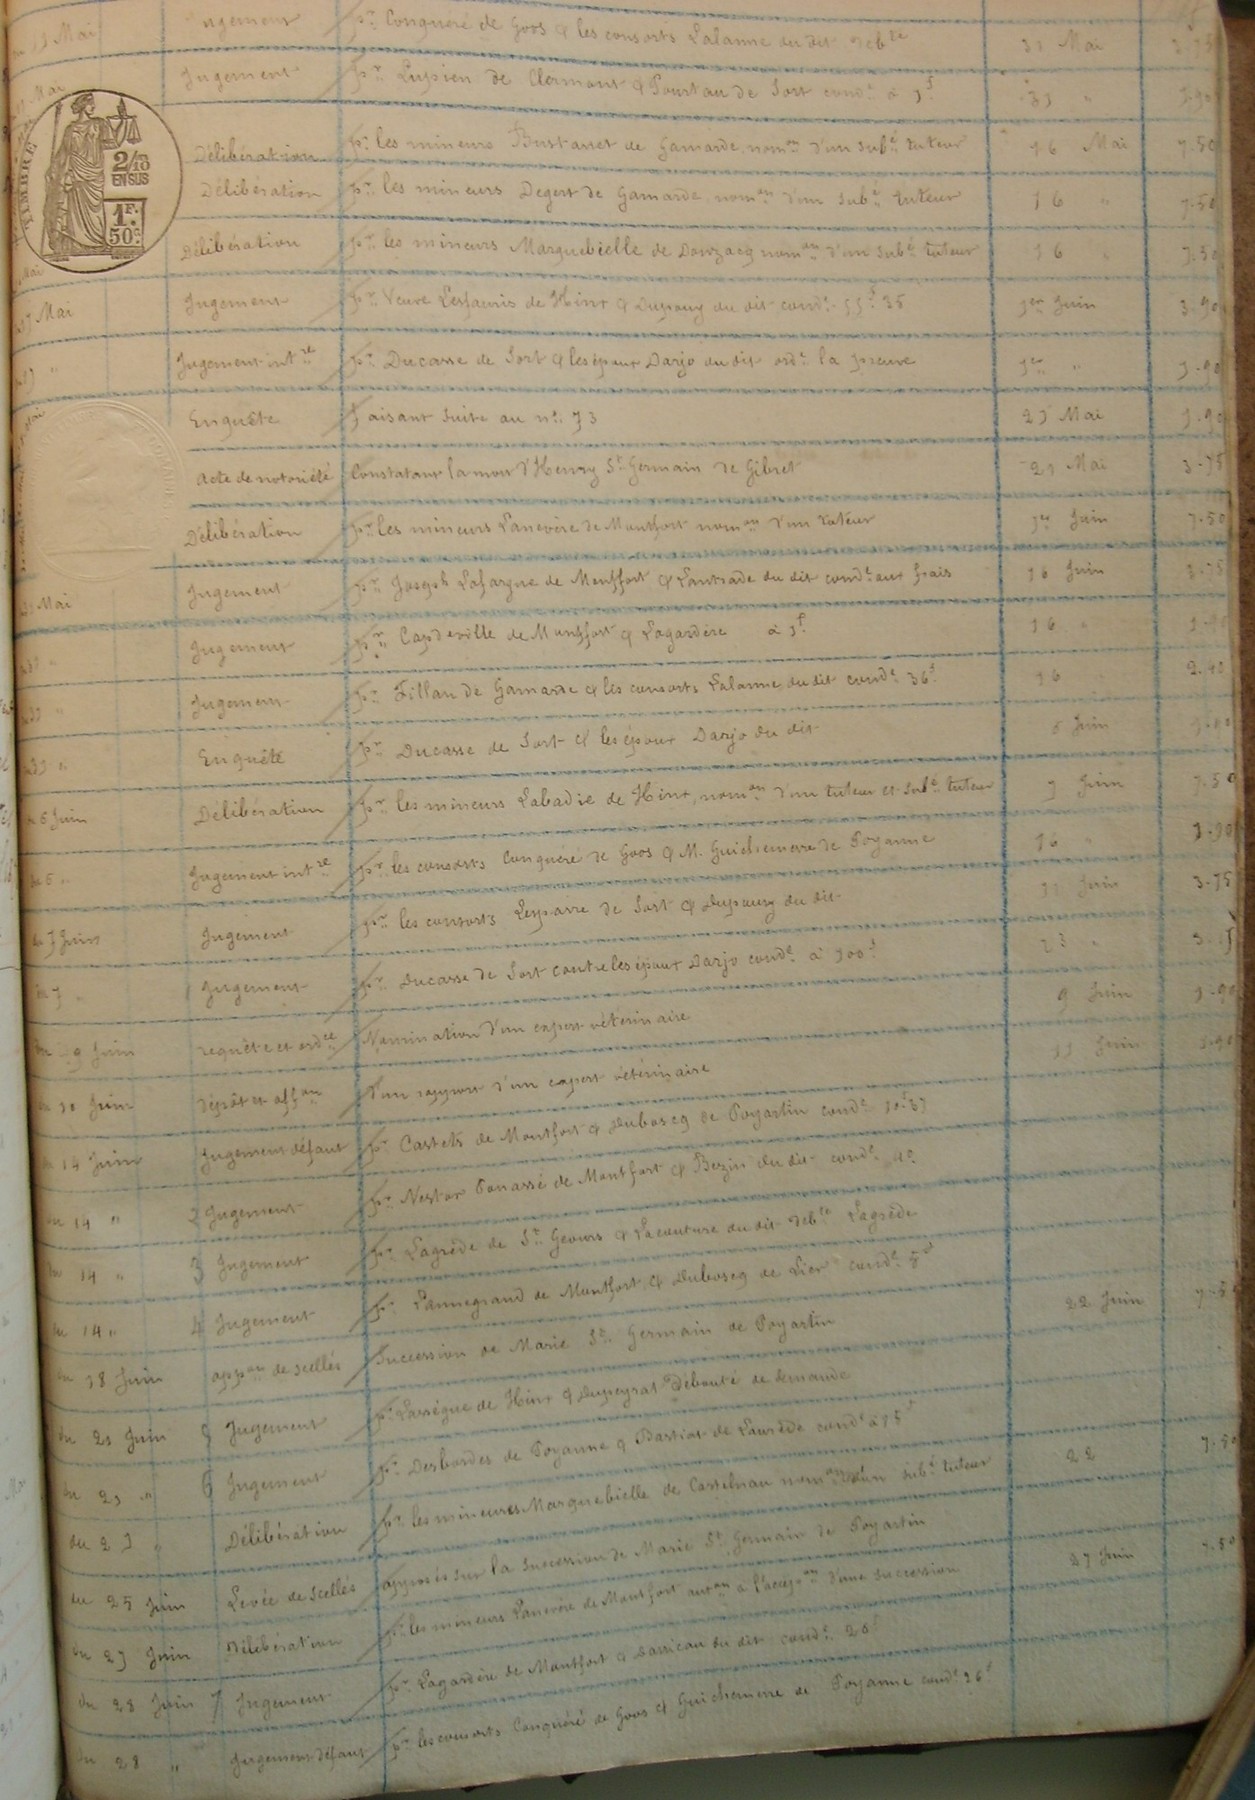 Mai Jugement pr Conquéré de Goos & les consorts Lalanne du dit debte 31 Mai 3.75
Jugement pr Lupien de Clermont & Pourtau de Sort condé à 1f 31 " 1.90
TIMBRE 2/10 EN SUS 1F. 50c
Délibération pr les mineurs Bustarret de Gamarde, nomon d'un subé tuteur 16 Mai 7.50
Délibération pr les mineurs Degert de Gamarde, nomon d'un subé tuteur 16 " 7.50
Délibération pr les mineurs Marquebielle de Donzacq nomon d'un subé tuteur 16 " 7.50
Mai Jugement pr Veuve Lesfauris de Hinx & Dupouy du dit condé 55f 35 1er Juin 3.90
" Jugement intre pr Ducasse de Sort & les époux Darjo du dit ordt la preuve 1er " 1.90
Enquête faisant suite au no 73 21 Mai 1.90
Acte de notoriété Constatant la mort d'Henry St Germain de Gibret 21 Mai 3.75
Délibération pr les mineurs Lanevère de Montfort nomon d'un tuteur 1er Juin 7.50
Mai Jugement pr Joseph Lafargue de Montfort & Lantrade du dit condé aux frais 16 Juin 3.75
" Jugement pr Capdeville de Montfort & Lagardère à 1f 16 "
" Jugement pr Fillau de Gamarde & les consorts Lalanne du dit condé 36f 16 2.40
" Enquête pr Ducasse de Sort & les époux Darjo du dit Juin
6 Juin Délibération pr les mineurs Labadie de Hinx, nomon d'un tuteur et subé tuteur 7 Juin 7.50
du 6 " Jugement intre pr les consorts Conquéré de Goos & M. Guichemerre de Poyanne 16 " 1.90
du 7 Juin Jugement pr les consorts Lesparre de Sort & Dupouy du dit 11 Juin 3.75
du 7 " Jugement pr Ducasse de Sort contre les époux Darjo condé à 100f 23 "
du 9 Juin requête et ordce Nomination d'un expert vétérinaire 9 Juin 1.90
du 10 Juin dépôt et affon d'un rapport d'un expert vétérinaire 11 Juin 1.90
du 14 Juin Jugement défaut pr Castets de Montfort & Duboscq de Poyartin condé 10f 37
du 14 " 2 Jugement pr Nestor Conassé de Montfort & Bezin du dit condé
du 14 " 3 Jugement pr Lagrède de St Geours & Lacouture du dit debte Lagrède
du 14 " 4 Jugement pr Lannegrand de Montfort & Duboscq de Lier condé 5f
du 18 Juin appon de scellés Succession de Marie St Germain de Poyartin 22 Juin
du 21 Juin 5 Jugement pr Lassègue de Hinx & Dupeyrat Débouté de demande
du 21 " 6 Jugement pr Desbordes de Poyanne & Bastiat de Laurède condé à 15f
du 21 " Délibération pr les mineures Marquebielle de Castelnau nomon d'un subé tuteur 22 7.50
du 25 Juin Levée de scellés apposés sur la succession de Marie St Germain de Poyartin
du 27 Juin Délibération pr les mineurs Lanevère de Montfort auton à l'accepon d'une succession 27 Juin 7.50
du 28 Juin 7 Jugement pr Lagardère de Montfort & Darricau du dit condé 20f
du 28 " Jugement défaut pr les consorts Conquéré de Goos & Guichemerre de Poyanne condé 26f